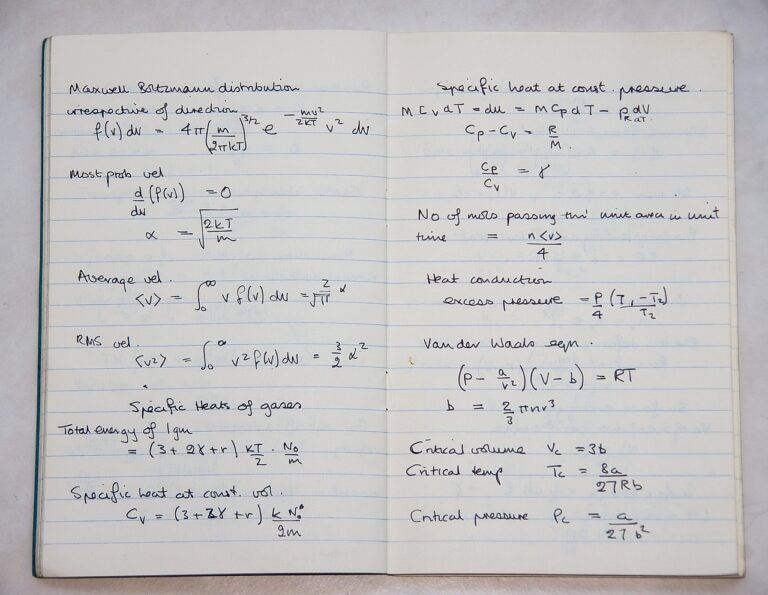 Maxwell Boltzmann distribution
irrespective of direction
f(v) dv = 4π(m/2πkT)^3/2 e^-mv²/2kT v² dv
Most prob vel
d/dv (f(v)) = 0
α = √(2kT/m)
Average vel.
<v> = ∫₀^∞ v f(v) dv = 2/√π α
RMS vel.
<v²> = ∫₀^∞ v² f(v) dv = 3/2 α²
Specific Heats of gases
Total energy of 1gm
= (3 + 2γ + r) kT/2 · N₀/m
Specific heat at const. vol.
Cv = (3 + 2γ + r) k N₀/2m
Specific heat at const. pressure.
M Cv dT = du = M Cp dT - p dV
R dT.
Cp - Cv = R/M.
Cp/Cv = γ
No of mols passing thro' unit area in unit
time = n<v>/4
Heat conduction
excess pressure = P/4 (T₁ - T₂)/T₂
Van der Waals eqn.
(P - a/v²)(V - b) = RT
b = 2/3 πnr³
Critical volume Vc = 3b
Critical temp Tc = 8a/27Rb
Critical pressure Pc = a/27b²